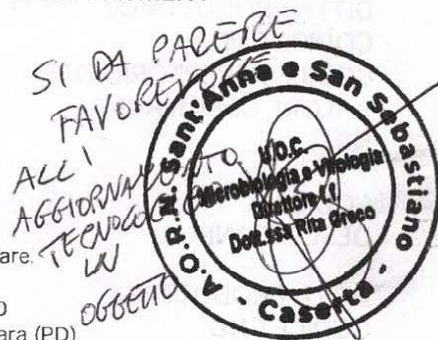 SI DA PARERE
FAVOREVOLE
ALL'
AGGIORNAMENTO
TECNOLOGICO
IN
OGGETTO
A.O.R.N. Sant'Anna e San Sebastiano
- Caserta -
U.O.C.
Microbiologia e Virologia
Direttore f.f.
Dott.ssa Rita Greco
are.
ara (PD)